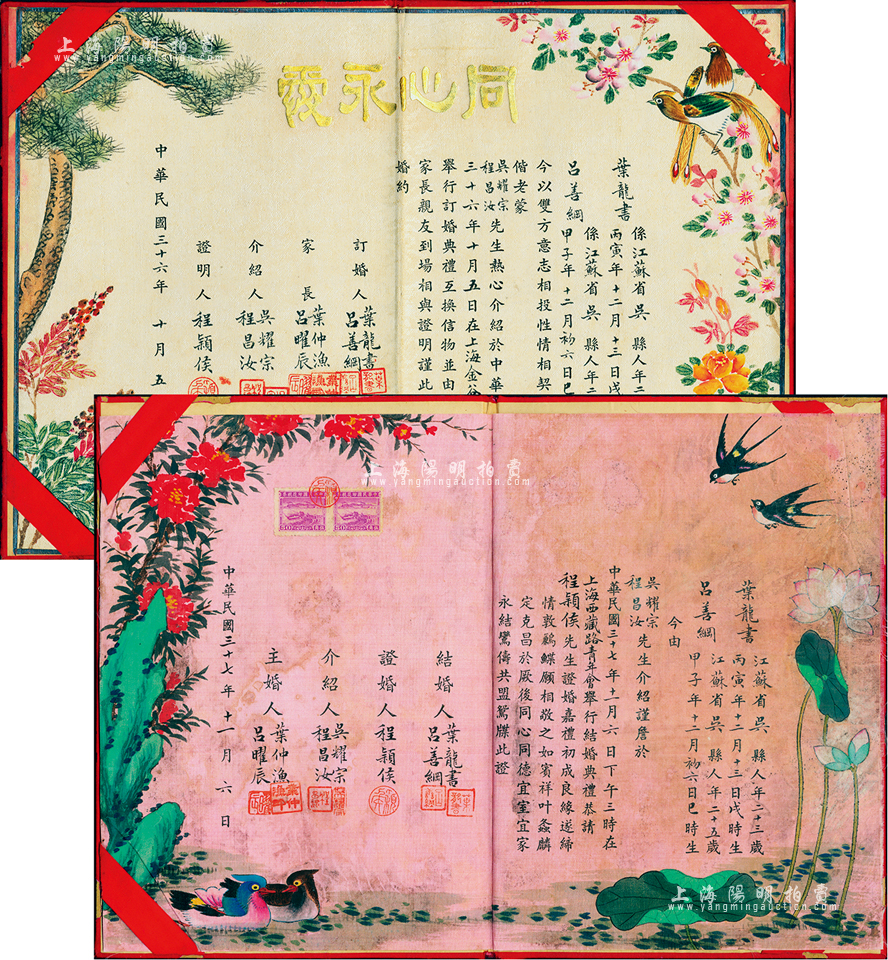 上海陽明拍賣
www.yangmingauction.com
同心永愛
葉龍書 係江蘇省吳縣人年二
丙寅年十二月十三日戌
呂善綱 係江蘇省吳縣人年二
甲子年十二月初六日巳
今以雙方意志相投性情相契
偕老蒙
吳耀宗
程昌汝 先生熱心介紹於中華
三十六年十月五日在上海金谷
舉行訂婚典禮互換信物並由
家長親友到場相與證明謹此
婚約
訂婚人 葉龍書
呂善綱
家長 葉仲漁
呂曜辰
介紹人 吳耀宗
程昌汝
證明人 程穎侯
中華民國三十六年 十月五
上海陽明拍賣
www.yangmingauction.com
葉龍書 江蘇省吳縣人年二十三歲
丙寅年十二月十三日戌時生
呂善綱 江蘇省吳縣人年二十五歲
甲子年十二月初六日巳時生
今由
吳耀宗
程昌汝 先生介紹謹詹於
中華民國三十七年十一月六日下午三時在
上海西藏路青年會舉行結婚典禮恭請
程穎侯先生證婚嘉禮初成良緣遂締
情敦鶼鰈願相敬之如賓祥叶螽麟
定克昌於厥後同心同德宜室宜家
永結鸞儔共盟鴛牒此證
結婚人 葉龍書
呂善綱
證婚人 程穎侯
介紹人 吳耀宗
程昌汝
主婚人 葉仲漁
呂曜辰
中華民國三十七年十一月六日
上海陽明拍賣
www.yangmingauction.com